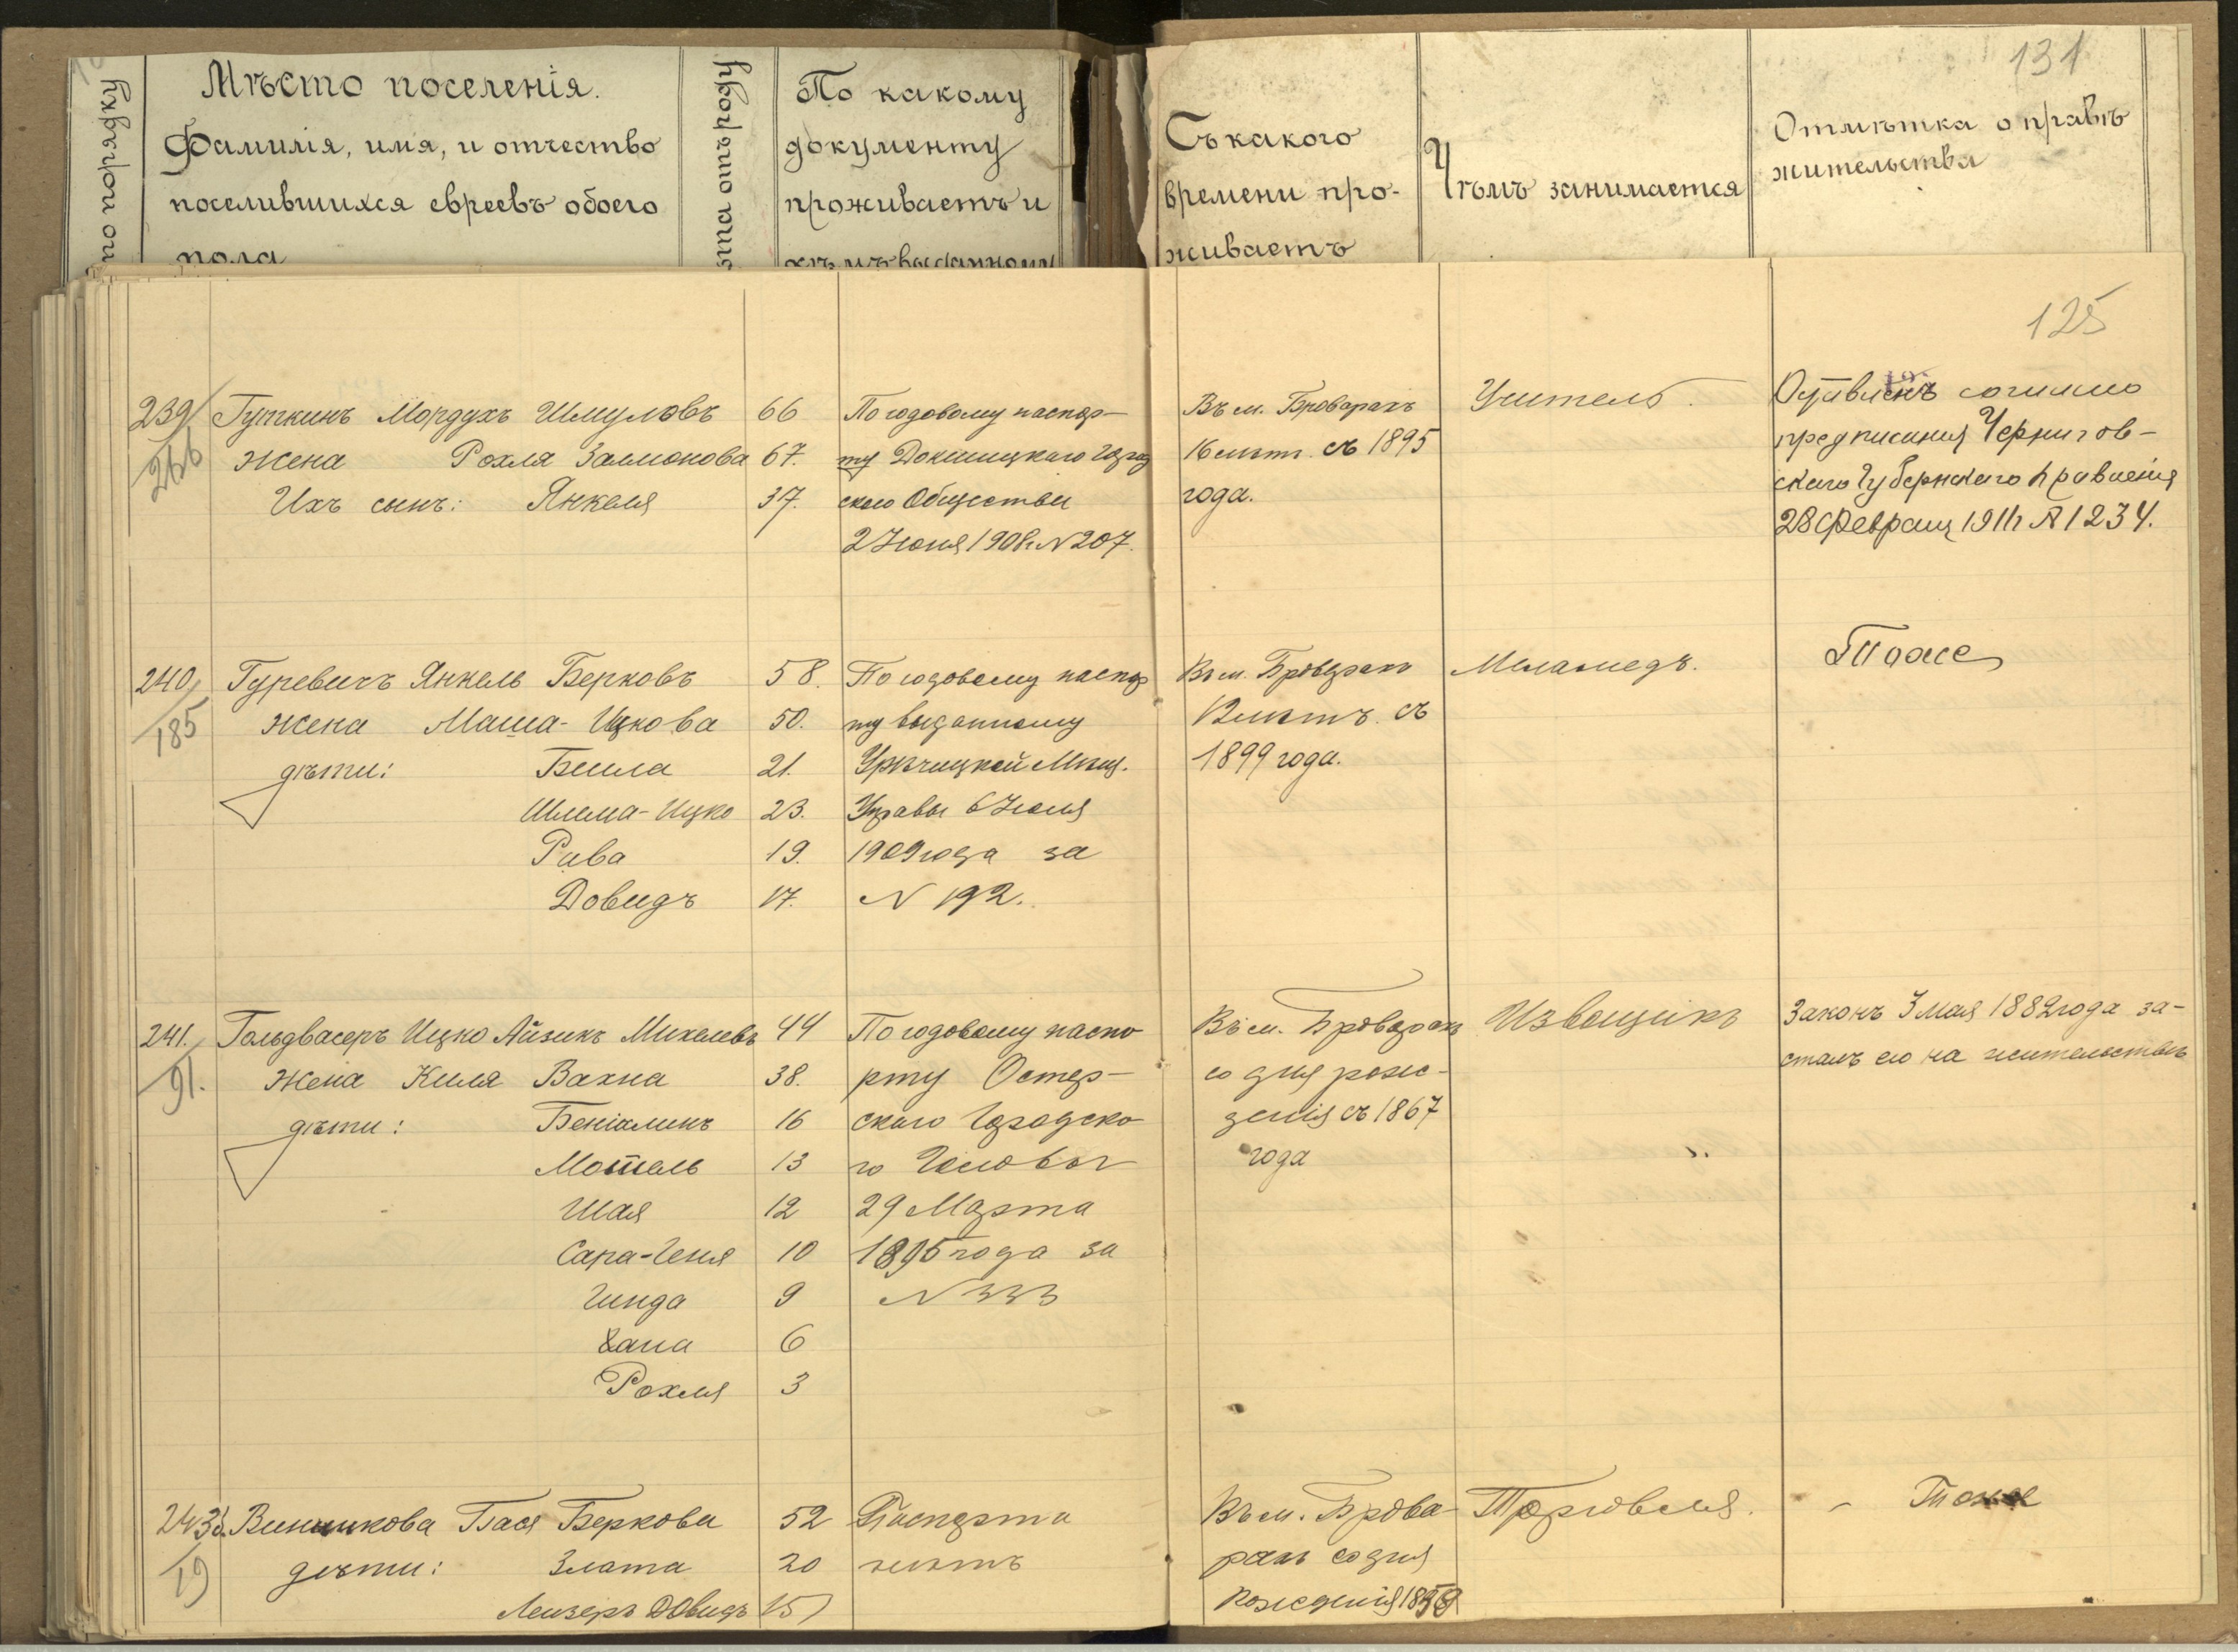 по порядку
Мѣсто поселенія.
Фамилія, имя, и отчество
поселившихся евреевъ обоего
пола
отъ роду
По какому
документу
проживаетъ и
кѣмъ выданному
Съ какого
времени про-
живаетъ
Чѣмъ занимается
131
Отмѣтка о правѣ
жительства
125
239/
Гуткинъ Мордухъ Шмуловъ 66
жена Рохля Залмонова 67.
Ихъ сынъ: Янкель 37.
По годовому паспор-
ту Докшицкаго Город
ского Общества
2 Июня 1908 г. N 207.
Въ м. Броварахъ
16 лѣтъ. съ 1895
года.
Учитель.
Оставленъ согласно
предписанія Чернигов-
скаго Губернскаго Правленія
28 Февраля 1911 г. № 1234.
240/
185
Гуревичъ Янкель Берковъ 58.
жена Маша-Ицкова 50.
дѣти: Бейла 21.
Шлема-Ицко 23.
Рива 19.
Довидъ 17.
По годовому паспор
ту выданному
Мѣщ.
Управы 6 Июля
1909 года за
N 192.
Въ м. Броварахъ
12 лѣтъ. съ
1899 года.
Меламедъ.
Тоже
241.
91.
Гольдвасеръ Ицко Айзикъ Михелевъ 44
жена Киля Вахна 38.
дѣти: Беніаминъ 16
Мотель 13
Шая 12
Сара-Геня 10
Гинда 9
Хана 6
Рохля 3
По годовому паспо
рту Остер-
скаго Городско
го Головы
29 Марта
1895 года за
N 333
Въ м. Броварахъ
со дня рож-
денія съ 1867
года
Извощикъ
Законъ 3 мая 1882 года за-
сталъ его на жительствѣ
243.
19
Винникова Бася Беркова 52
дѣти: Злата 20
Лейзеръ Довидъ 15
Паспорта
нѣтъ
Въ м. Брова-
рахъ со дня
рожденія 1859
Торговля.
- Тоже